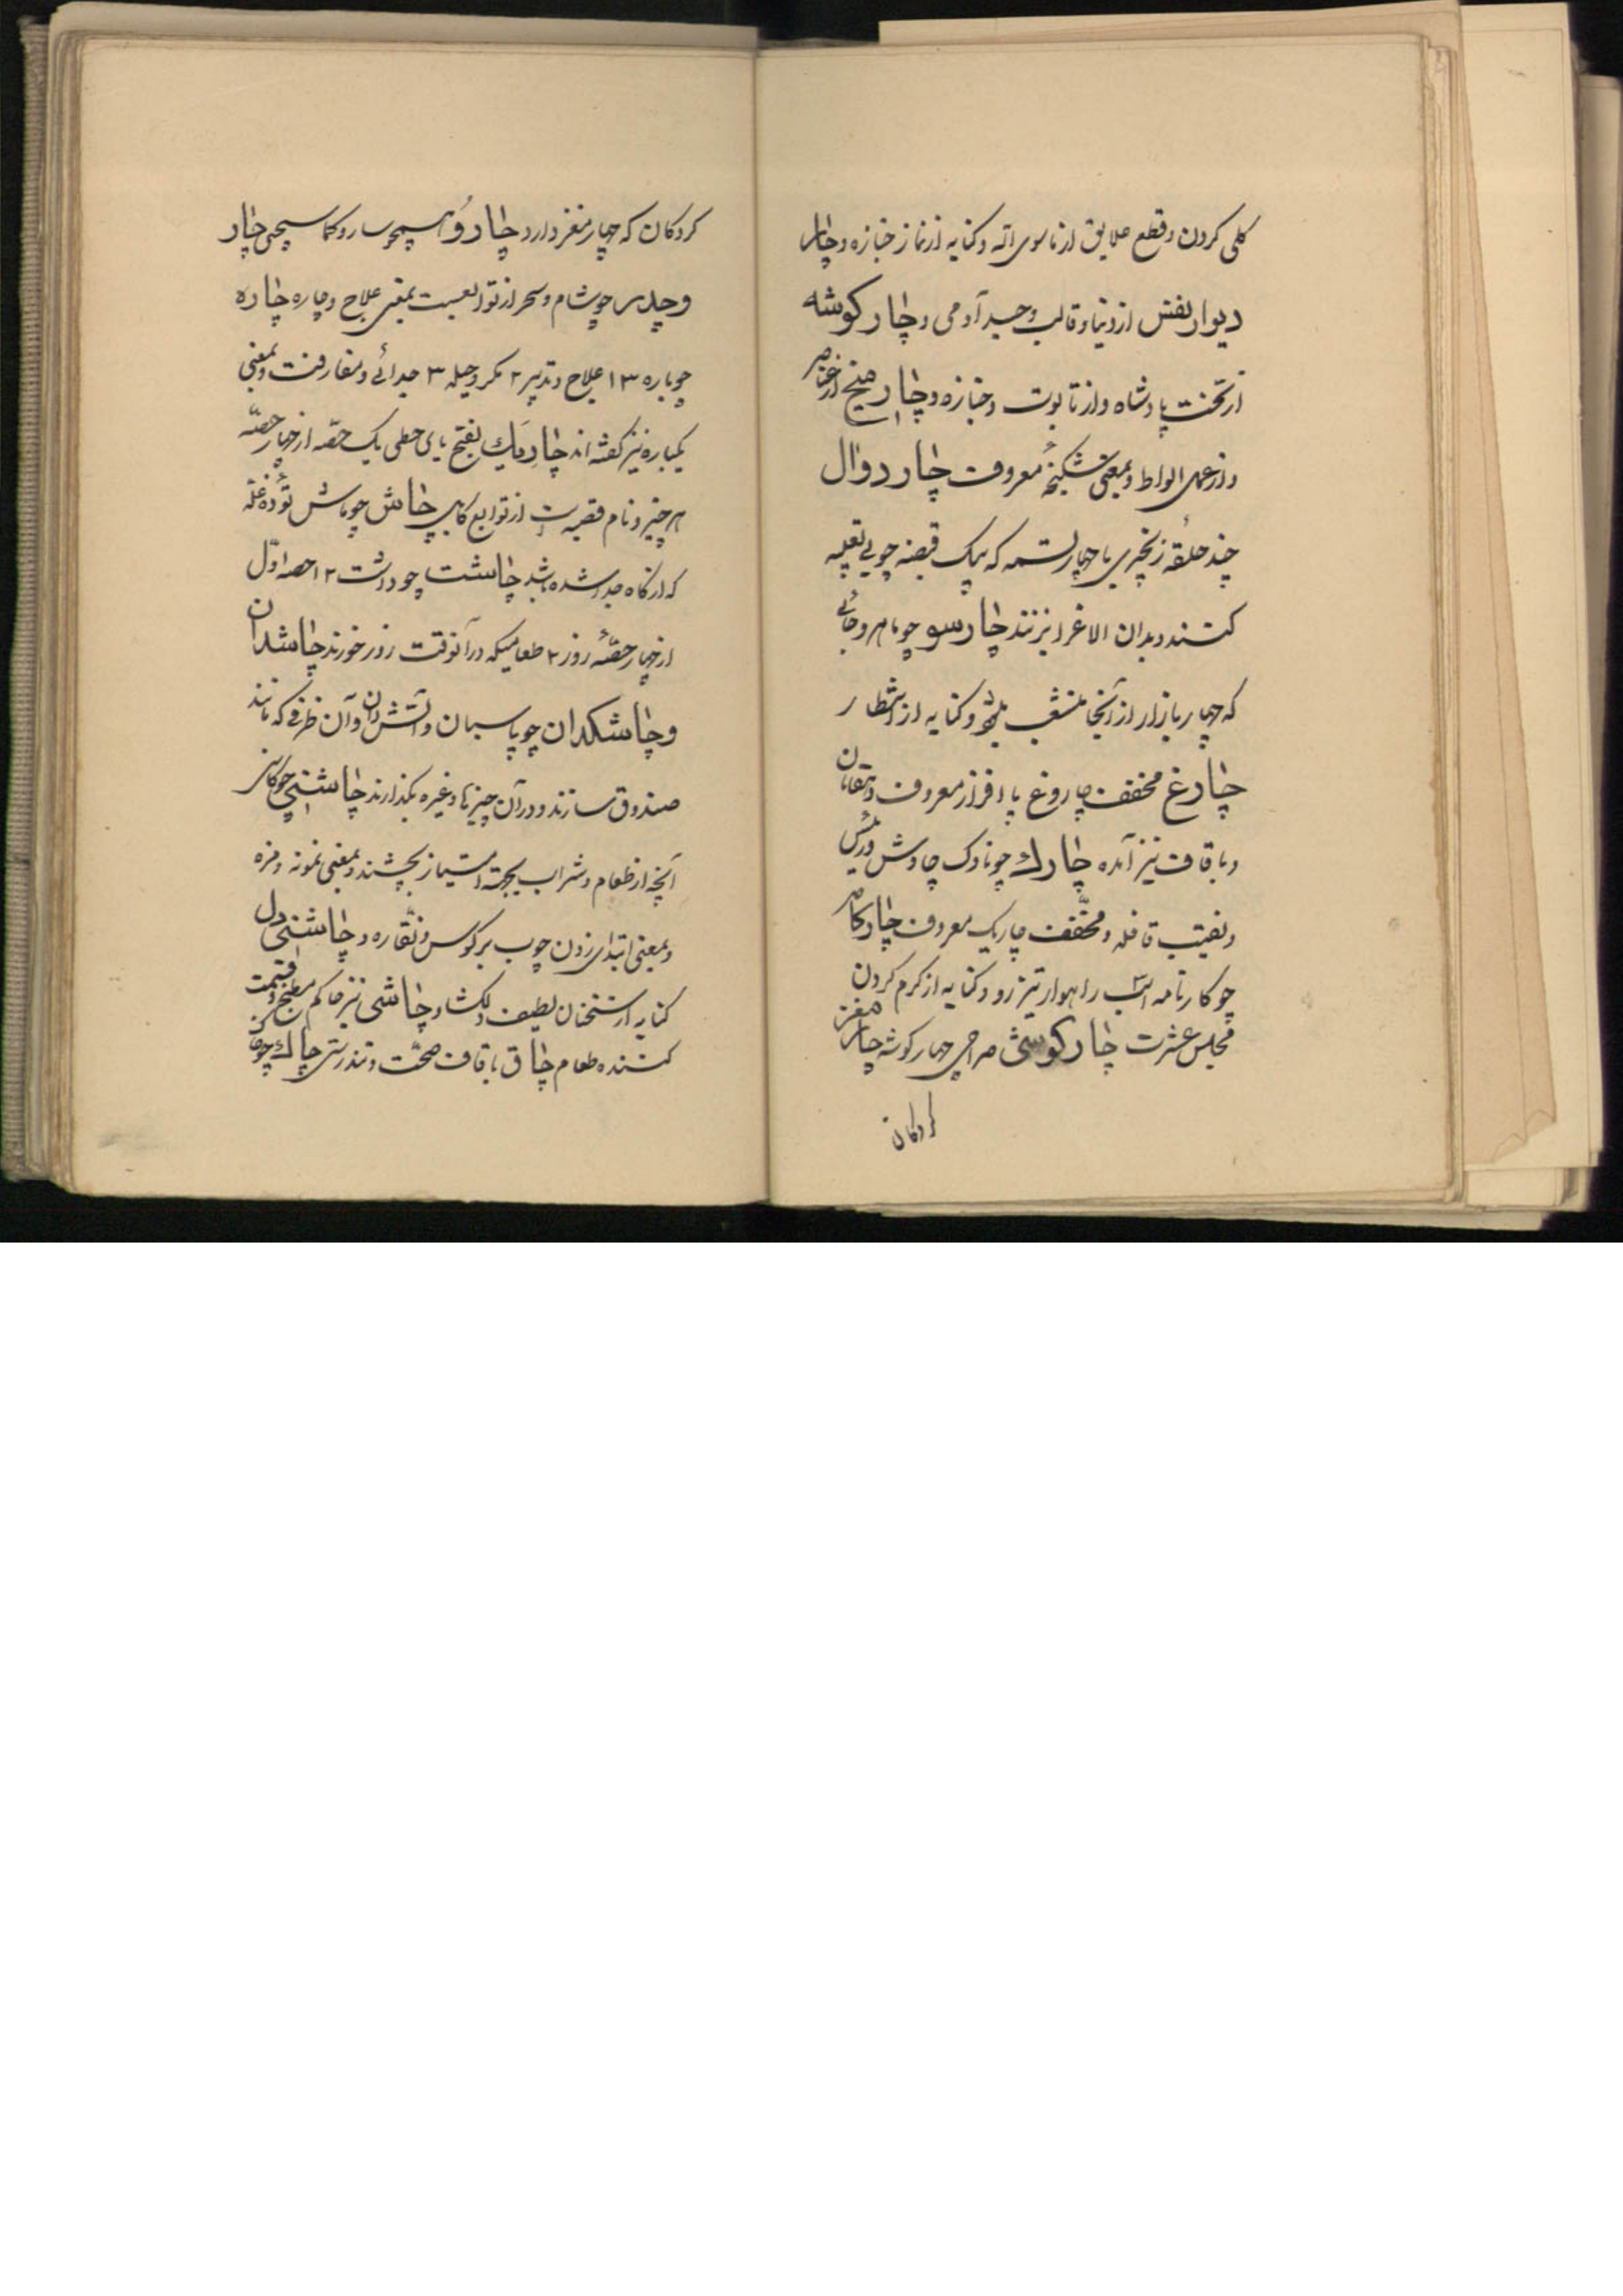 کلی کردن وقطع علایق از ماسوی الله وکنایه از نماز جنازه وچار
دیوار نفس از دنیا وقالب وجسد آدمی وچار کوشه
از تخت پادشاه واز تابوت وجنازه وچار میخ از عناصر
واز عمل لواط وبمعنی شکنجهٔ معروف چار دوال
چند حلقه زنجیری با چهار تسمه که بیک قبضه چوبی تعبیه
کنند وبدان الاغ را بزنند چارسو چو ماهرو جائی
که چهار بازار از آنجا منشعب شود وکنایه از انتظار
چارغ مخفف چاروغ پا افزار معروف دهقانان
وبا قاف نیز آمده چارك چو ناوک چاوش ورئیس
ونقیب قافله ومخفّف چاریک معروف چارکامه
چو کارنامه اسب راهوار تیز رو وکنایه از کرم کردن
مجلس عشرت چار کوشی صراحی چهار کوشه چارمغز
کردکان
کردکان که چهار مغز دارد چارو همچو سارو کماسیجی چار
وچدر چو شام وسحر از توابعست بمعنی علاج وچاره چاره
چو باره ۱۳ علاج وتدبیر ۲ مکر وحیله ۳ جدائی ومفارقت وبمعنی
یکباره نیز کفته اند چاریَك بفتح یای حطی یک حصّه از چهار حصّه
هر چیز ونام قصبه‌ایست از توابع کابل چاش چو ماش تودهٔ غله
که از کاه جدا شده باشد چاشت چو داشت ۱۲ حصه اوّل
از چهار حصّهٔ روز ۲ طعامیکه در آنوقت روز خورند چاشدان
وچاشکدان چو پاسبان وآتشدان وآن ظرفی که مانند
صندوق سازند ودر آن چیزها وغیره بگذارند چاشنی چو کاسنی
آنچه از طعام وشراب بجهة امتیاز بچشند وبمعنی نمونه ومزه
وبمعنی ابتدای زدن چوب بر کوس ونقّاره وچاشنی دل
کنایه از سخنان لطیف ودلکشا وچاشنی گیر حاکم مطبخ وقسمت
کننده طعام چاق با قاف صحّت وتندرستی چالك چو